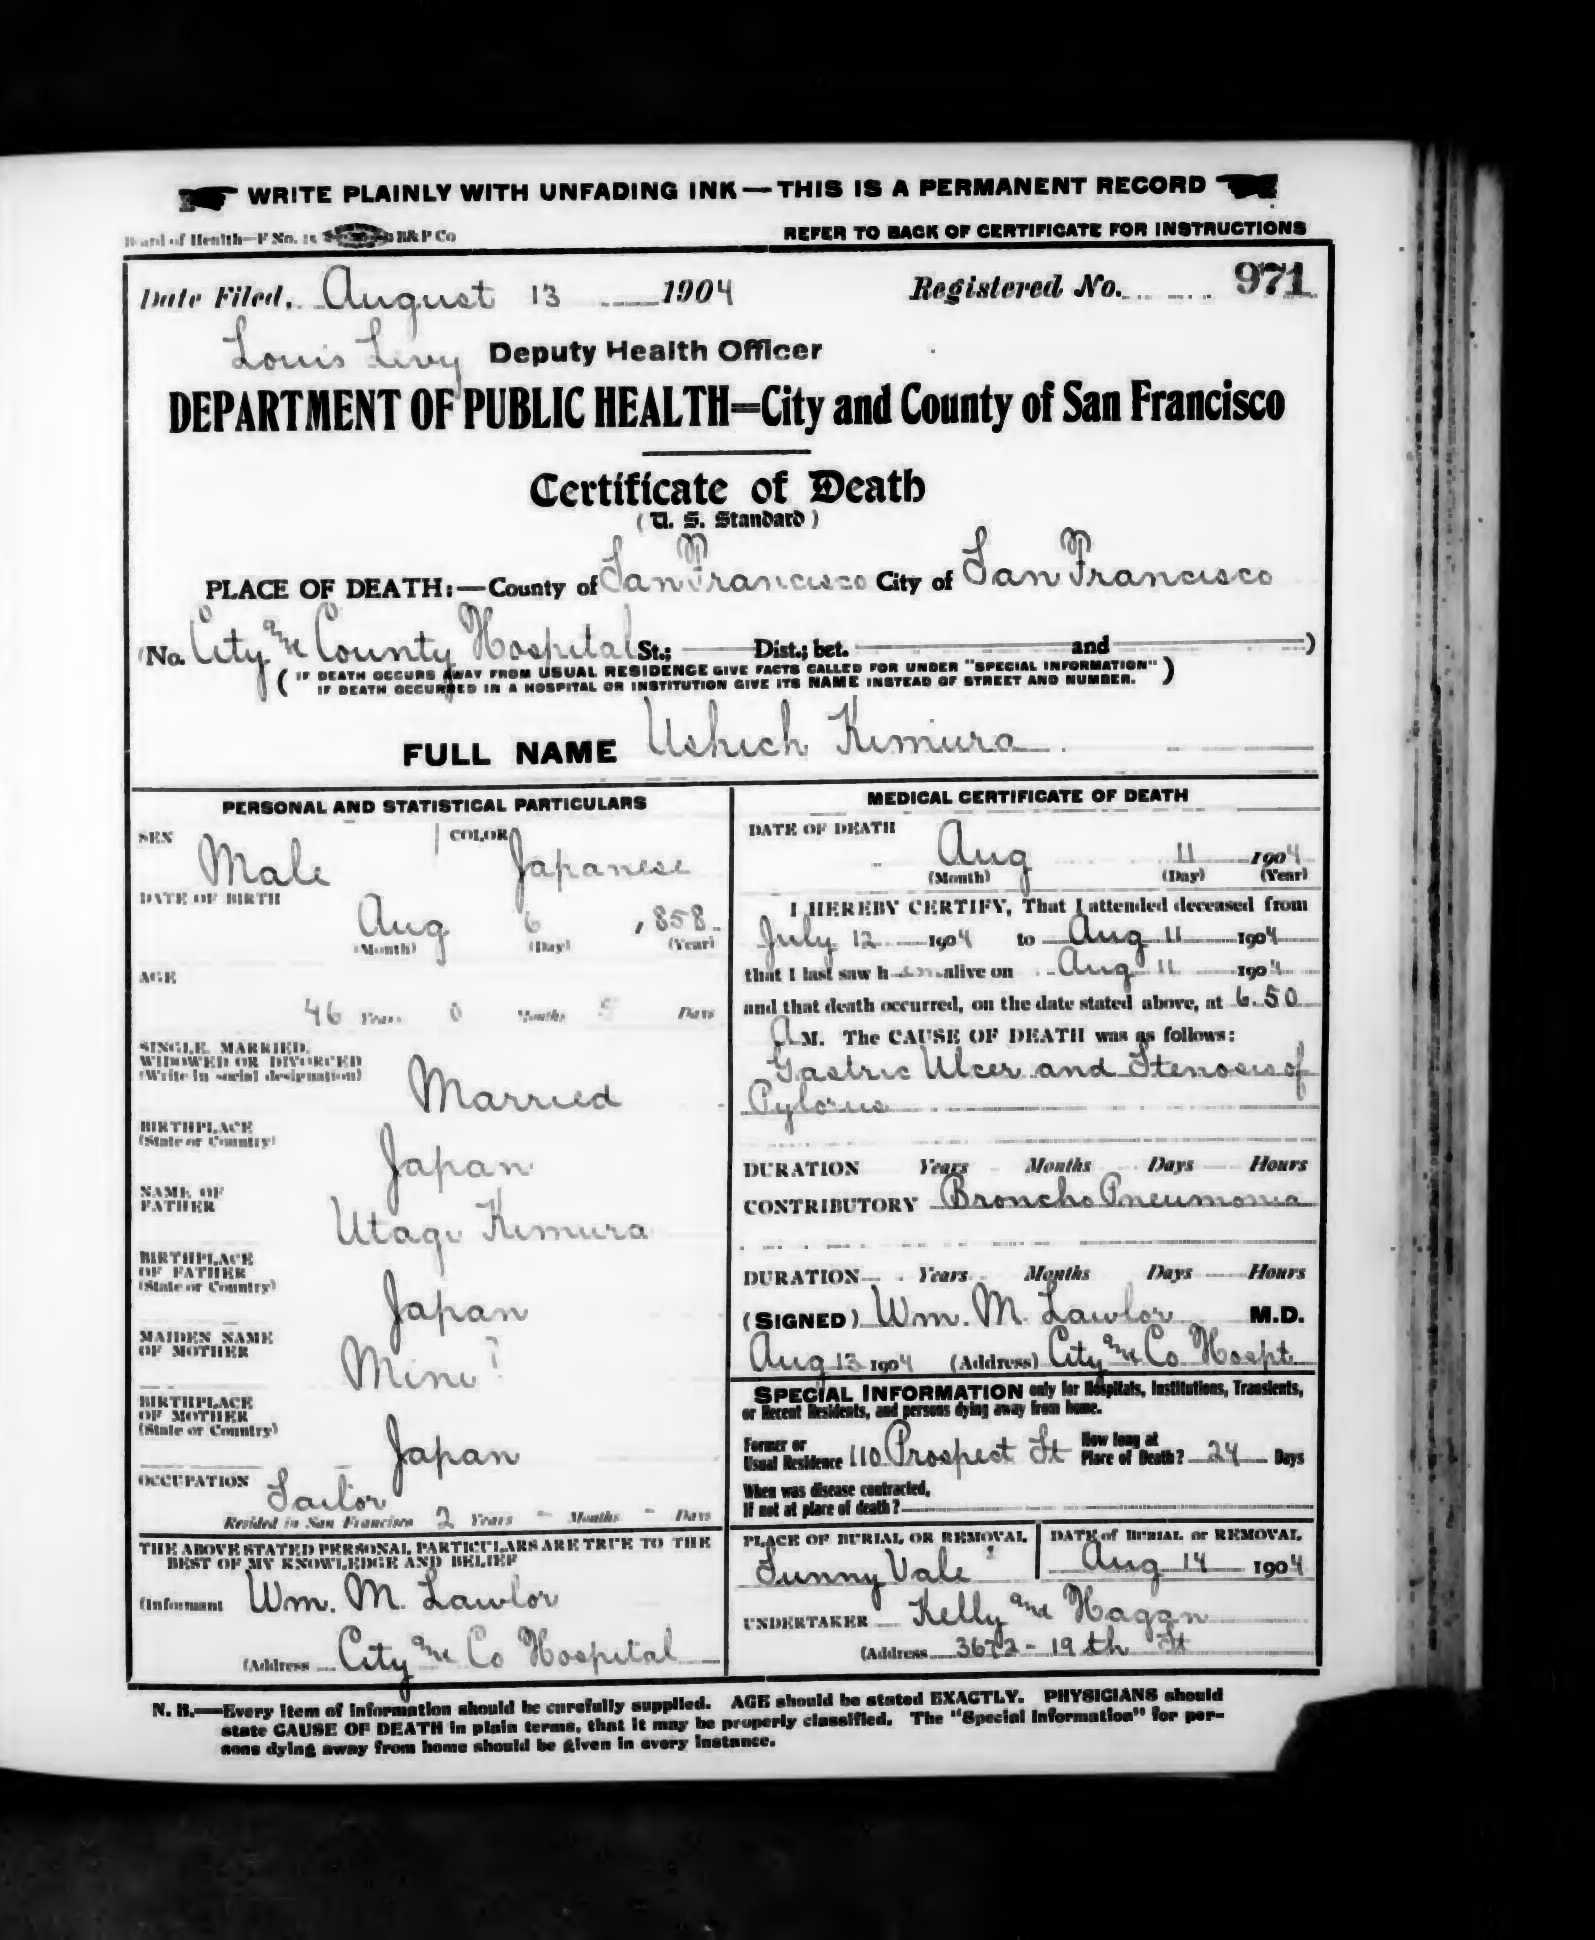 WRITE PLAINLY WITH UNFADING INK—THIS IS A PERMANENT RECORD
Board of Health—F No. 15 B&P Co REFER TO BACK OF CERTIFICATE FOR INSTRUCTIONS
Date Filed, August 13 1904 Registered No. 971
Louis Levy Deputy Health Officer
DEPARTMENT OF PUBLIC HEALTH=City and County of San Francisco
Certificate of Death
(U. S. Standard)
PLACE OF DEATH:—County of San Francisco City of San Francisco
(No. City and County Hospital St.; Dist.; bet. and )
(IF DEATH OCCURS AWAY FROM USUAL RESIDENCE GIVE FACTS CALLED FOR UNDER "SPECIAL INFORMATION"
IF DEATH OCCURRED IN A HOSPITAL OR INSTITUTION GIVE ITS NAME INSTEAD OF STREET AND NUMBER.)
FULL NAME Ushich Kimura
PERSONAL AND STATISTICAL PARTICULARS
SEX Male COLOR Japanese
DATE OF BIRTH
Aug 6 1858
(Month) (Day) (Year)
AGE
46 Years 0 Months 5 Days
SINGLE, MARRIED,
WIDOWED OR DIVORCED
(Write in social designation) Married
BIRTHPLACE
(State or Country) Japan
NAME OF
FATHER Utagi Kimura
BIRTHPLACE
OF FATHER
(State or Country) Japan
MAIDEN NAME
OF MOTHER Mine ?
BIRTHPLACE
OF MOTHER
(State or Country) Japan
OCCUPATION Tailor
Resided in San Francisco 2 Years - Months - Days
THE ABOVE STATED PERSONAL PARTICULARS ARE TRUE TO THE
BEST OF MY KNOWLEDGE AND BELIEF
(Informant Wm. M. Lawlor
(Address City and Co Hospital
MEDICAL CERTIFICATE OF DEATH
DATE OF DEATH
Aug 11 1904
(Month) (Day) (Year)
I HEREBY CERTIFY, That I attended deceased from
July 12 1904 to Aug 11 1904
that I last saw h im alive on Aug 11 1904
and that death occurred, on the date stated above, at 6.50
A M. The CAUSE OF DEATH was as follows:
Gastric Ulcer and Stenosis of
Pylorus
DURATION Years Months Days Hours
CONTRIBUTORY Broncho Pneumonia
DURATION Years Months Days Hours
(SIGNED) Wm. M. Lawlor M.D.
Aug 13 1904 (Address) City and Co Hospt.
SPECIAL INFORMATION only for Hospitals, Institutions, Transients,
or Recent Residents, and persons dying away from home.
Former or
Usual Residence 110 Prospect St How long at
Place of Death? 24 Days
When was disease contracted,
If not at place of death?
PLACE OF BURIAL OR REMOVAL DATE of BURIAL or REMOVAL
Sunny Vale Aug 14 1904
UNDERTAKER Kelly and Hagan
(Address 3672-19th St
N. B.—Every item of information should be carefully supplied. AGE should be stated EXACTLY. PHYSICIANS should
state CAUSE OF DEATH in plain terms, that it may be properly classified. The "Special Information" for per-
sons dying away from home should be given in every instance.